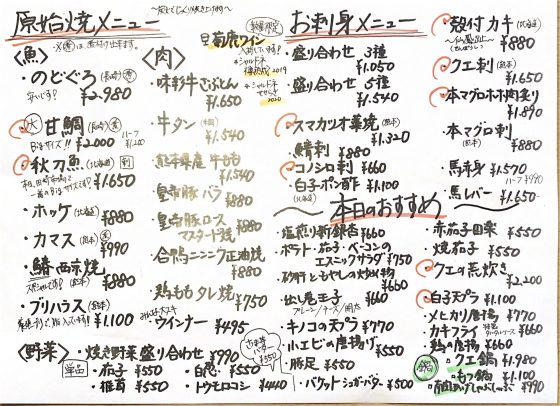 原始焼メニュー
〈魚〉
・のどぐろ(長崎)
¥2,980
・甘鯛(長崎)
¥2,000
・秋刀魚(北海道)刺
¥1,650
・ホッケ(北海道)
¥880
・カマス(熊本)
¥990
・鰆西京焼
¥880
・ブリハラス
¥1,100
〈肉〉
・味彩牛さぶとん
¥1,650
・牛タン
¥1,540
・熊本県産 牛もも
¥1,540
・皇帝豚バラ
¥880
・皇帝豚ロース
マスタード焼
¥880
・合鴨ニンニク正油焼
¥880
・鶏ももタレ焼
¥750
・ウインナー ¥495
〈野菜〉・焼き野菜盛り合わせ ¥990
単品
・茄子 ¥550
・椎茸 ¥550
・白葱 ¥550
・トウモロコシ ¥440
数量限定
菊鹿ワイン
2019
2020
お刺身メニュー
・盛り合わせ 3種
¥1,050
・盛り合わせ 5種
¥1,540
・スマカツオ藁焼(熊本)
¥1,320
・鯖刺 ¥880
・コノシロ刺 ¥660
・白子ポン酢 ¥1,100
(北海道)
・殻付カキ(北海道)
¥880
・クエ刺(熊本)
¥1,650
・本マグロホホ肉炙り
¥1,890
・本マグロ刺
¥880
・馬赤身 ¥1,570
ハーフ ¥990
・馬レバー ¥1,650
本日のおすすめ
・塩煎り新銀杏 ¥660
・ポテト・茄子・ベーコンの
エスニックサラダ ¥750
・砂肝ともやしの炒め物
¥660
・出し尾玉子 ¥660
プレーン/チーズ/明太
・キノコの天プラ ¥770
・小エビの唐揚げ
¥550
・豚足 ¥550
・バケットシュガーバター ¥500
・赤茄子田楽 ¥550
・焼茄子 ¥550
・クエの荒炊き
¥2,200
・白子天プラ ¥1,100
・メヒカリ唐揚 ¥770
・カキフライ ¥770
・鶏の唐揚 ¥660
鍋
・クエ鍋 ¥1,980
・もつ鍋 ¥1,100
¥990